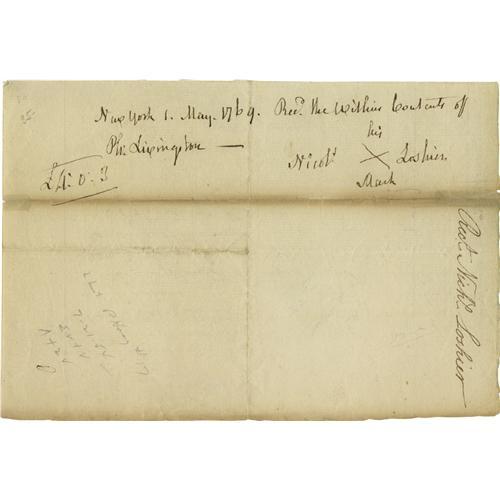 New York 1. May. 1769. Rec.d the Within Contents off
Phi. Livingston —
his
Nicol.s X Loshier
Mark
£4: 0: 3
Rec.t Nich.s Loshier